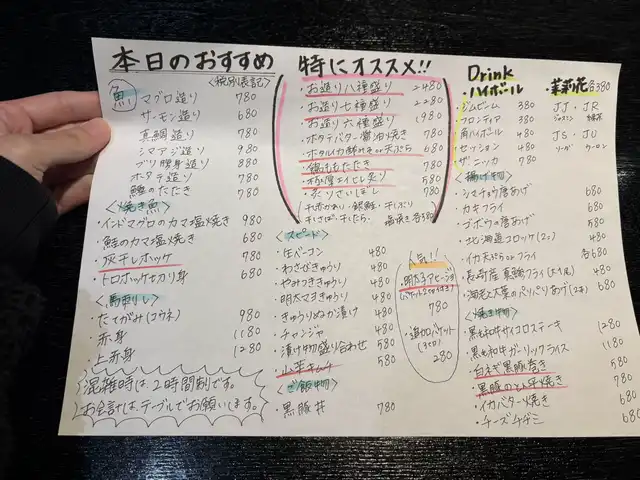 本日のおすすめ
<税別表記>
魚
マグロ造り 780
サーモン造り 680
真鯛造り 780
シマアジ造り 980
ブリ腹身造り 880
ホタテ造り 780
鰹のたたき 780
<焼き魚>
・インドマグロのカマ塩焼き 980
・鮭のカマ塩焼き 680
・灰干しホッケ 780
・トロホッケセカリ身 680
<馬刺し>
・たてがみ(コウネ) 980
・赤身 1180
・上赤身 1280
混雑時は、2時間制です。
お会計は、テーブルでお願いします。
特にオススメ!!
・お造り八種盛り 2480
・お造り七種盛り 2280
・お造り六種盛り 1980
・ホタテバター醤油焼き 780
・ホタルイカ酢みそor天ぷら 680
・鶏ももたたき 780
・極厚エイヒレ炙り 580
・炙りさいぼし 780
<スピード>
・生ベーコン 480
・わさびきゅうり 480
・やみつききゅうり 480
・明太マヨきゅうり 480
・きゅうり浅漬け 480
・チャンジャ 480
・漬け物盛り合わせ 580
・山芋キムチ 580
<ご飯物>
・黒豚丼 780
人気!!
・明太子アヒージョ
780
・追加バケット
280
Drink
・ハイボール
・ジムビーム 380
・フロンティア 380
・角ハイボール 480
・セッション 480
・ザ・ニッカ 780
・茉莉花 各380
JJ・JR
JS・JU
<揚げ物>
・シマチョウ唐あげ 680
・カキフライ 680
・ゴボウの唐あげ 580
・北海道コロッケ(2コ) 480
・イカ天ぷらorフライ 各680
・海老と大葉のパリパリあげ(2本) 680
<焼き物>
・黒毛和牛サイコロステーキ 1280
・黒毛和牛ガーリックライス 1180
・白ネギ黒豚巻き 580
・黒豚のとん平焼き 780
・イカバター焼き 680
・チーズチヂミ 680